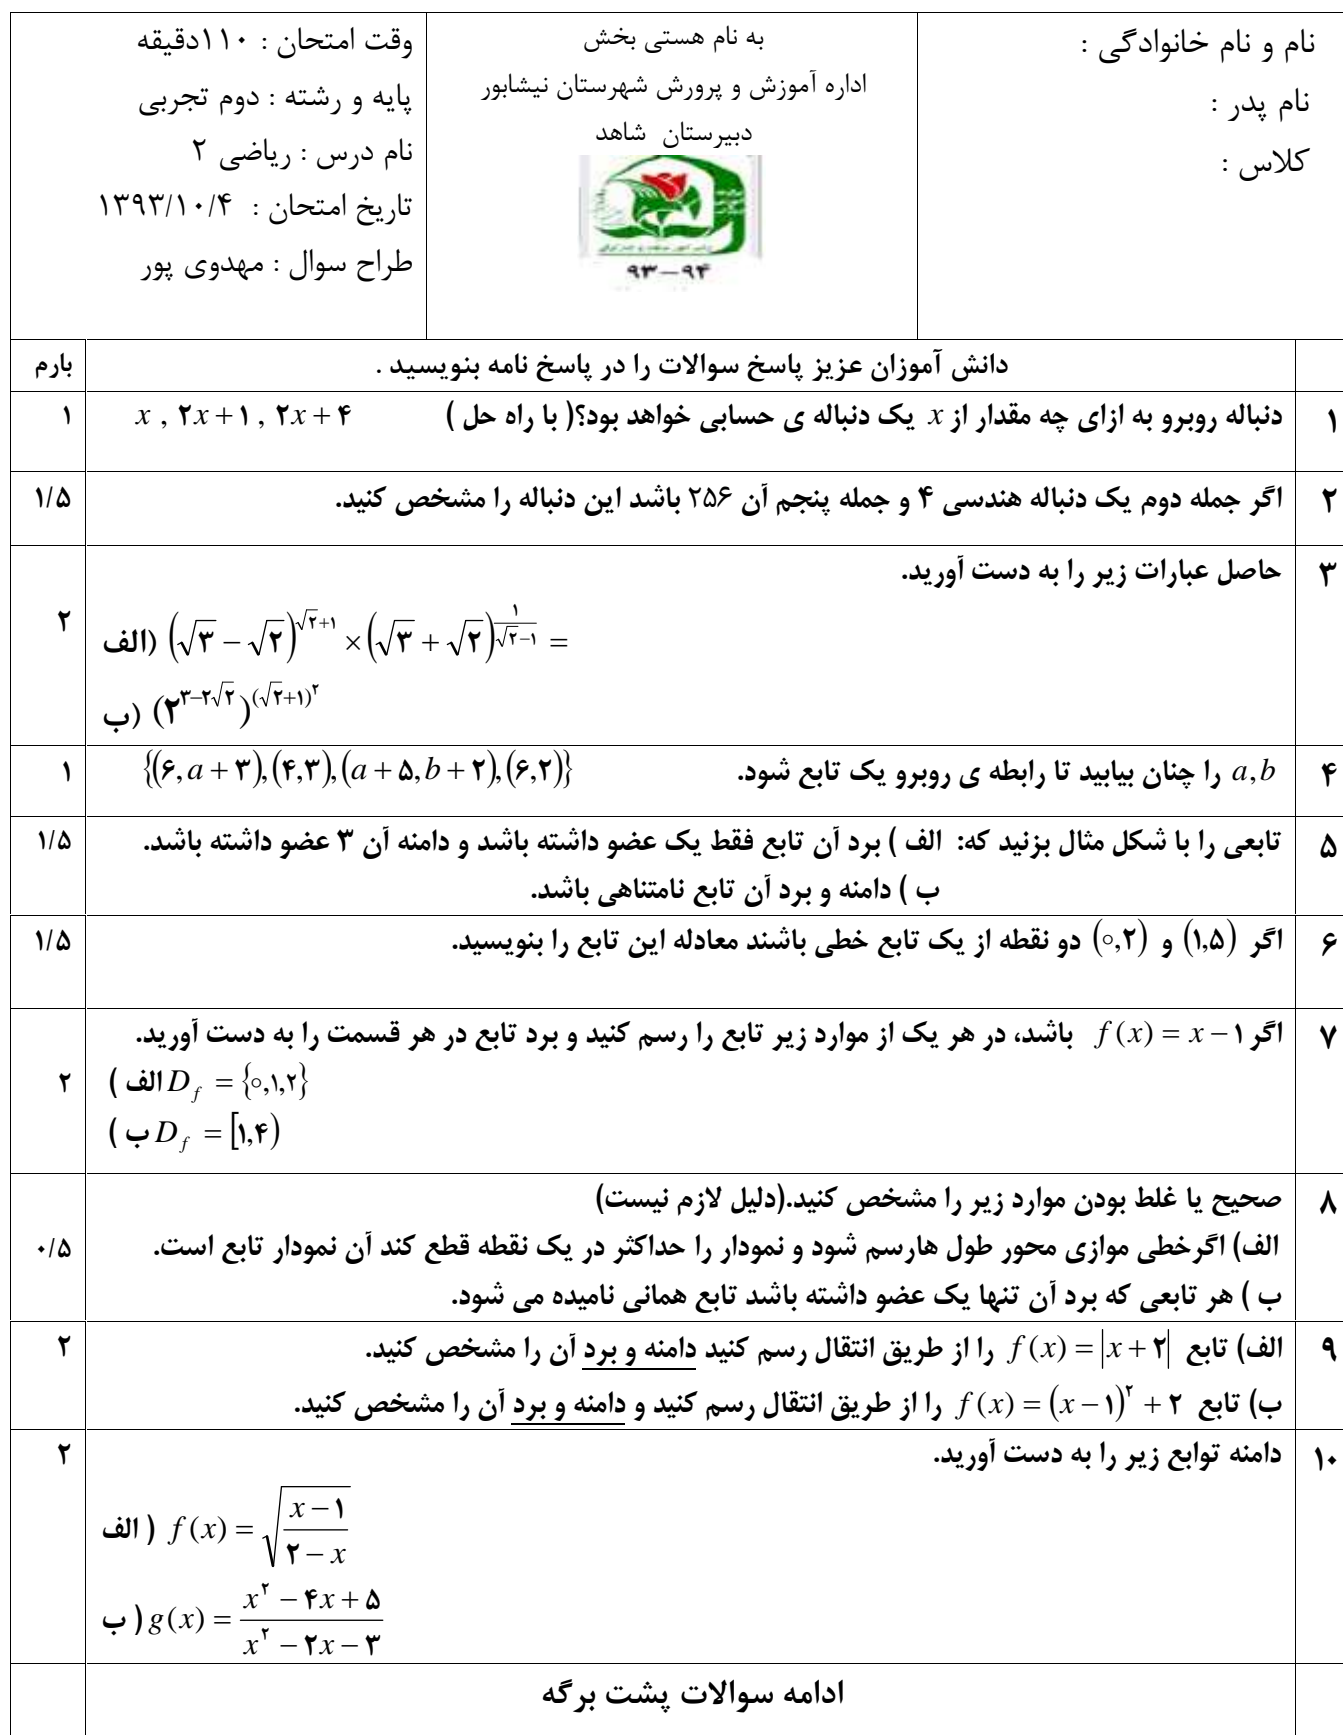 نام و نام خانوادگی :
نام پدر :
کلاس :
به نام هستی بخش
اداره آموزش و پرورش شهرستان نیشابور
دبیرستان شاهد
۹۳-۹۴
وقت امتحان : ۱۱۰دقیقه
پایه و رشته : دوم تجربی
نام درس : ریاضی ۲
تاریخ امتحان : ۱۳۹۳/۱۰/۴
طراح سوال : مهدوی پور
دانش آموزان عزیز پاسخ سوالات را در پاسخ نامه بنویسید . بارم
۱ دنباله روبرو به ازای چه مقدار از x یک دنباله ی حسابی خواهد بود؟( با راه حل ) x , ۲x+۱ , ۲x+۴ ۱
۲ اگر جمله دوم یک دنباله هندسی ۴ و جمله پنجم آن ۲۵۶ باشد این دنباله را مشخص کنید. ۱/۵
۳ حاصل عبارات زیر را به دست آورید. ۲
الف) (√۳ − √۲)^(√۲+۱) × (√۳ + √۲)^(۱/(√۲−۱)) =
ب) (۲^(۳−۲√۲))^((√۲+۱)^۲)
۴ a,b را چنان بیابید تا رابطه ی روبرو یک تابع شود. {(۶,a+۳),(۴,۳),(a+۵,b+۲),(۶,۲)} ۱
۵ تابعی را با شکل مثال بزنید که: الف ) برد آن تابع فقط یک عضو داشته باشد و دامنه آن ۳ عضو داشته باشد. ۱/۵
ب ) دامنه و برد آن تابع نامتناهی باشد.
۶ اگر (۱,۵) و (۰,۲) دو نقطه از یک تابع خطی باشند معادله این تابع را بنویسید. ۱/۵
۷ اگر f(x) = x−۱ باشد، در هر یک از موارد زیر تابع را رسم کنید و برد تابع در هر قسمت را به دست آورید. ۲
الف ) D_f = {۰,۱,۲}
ب ) D_f = [۱,۴)
۸ صحیح یا غلط بودن موارد زیر را مشخص کنید.(دلیل لازم نیست) ۰/۵
الف) اگرخطی موازی محور طول هارسم شود و نمودار را حداکثر در یک نقطه قطع کند آن نمودار تابع است.
ب ) هر تابعی که برد آن تنها یک عضو داشته باشد تابع همانی نامیده می شود.
۹ الف) تابع f(x) = |x+۲| را از طریق انتقال رسم کنید دامنه و برد آن را مشخص کنید. ۲
ب) تابع f(x) = (x−۱)^۲ + ۲ را از طریق انتقال رسم کنید و دامنه و برد آن را مشخص کنید.
۱۰ دامنه توابع زیر را به دست آورید. ۲
الف ) f(x) = √((x−۱)/(۲−x))
ب ) g(x) = (x^۲ − ۴x + ۵)/(x^۲ − ۲x − ۳)
ادامه سوالات پشت برگه